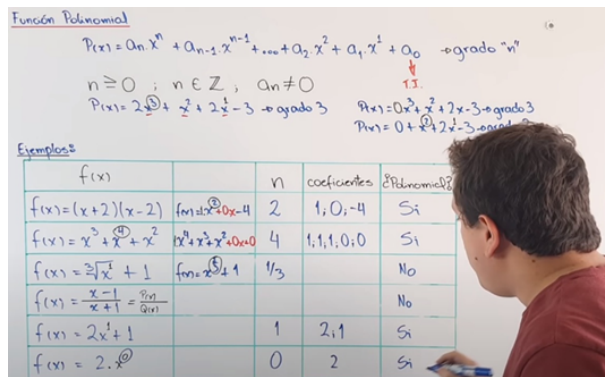 Función Polinomial
P(x) = aₙ.xⁿ + aₙ₋₁.xⁿ⁻¹ + ... + a₂.x² + a₁.x¹ + a₀ → grado "n"
T.I.
n ≥ 0 ; n ∈ ℤ ; aₙ ≠ 0
P(x) = 2x³ + x² + 2x¹ - 3 → grado 3
P(x) = 0x³ + x² + 2x - 3 → grado 3
P(x) = 0 + x² + 2x¹ - 3 →
Ejemplos:
f(x) n coeficientes ¿Polinomial?
f(x) = (x+2)(x-2) f(x) = 1x² + 0x - 4 2 1; 0; -4 Si
f(x) = x³ + x⁴ + x² 1x⁴ + x³ + x² + 0x + 0 4 1; 1; 1; 0; 0 Si
f(x) = ∛x¹ + 1 1/3 No
f(x) = (x-1)/(x+1) = P(x)/Q(x) No
f(x) = 2x¹ + 1 1 2; 1 Si
f(x) = 2.x⁰ 0 2 Si